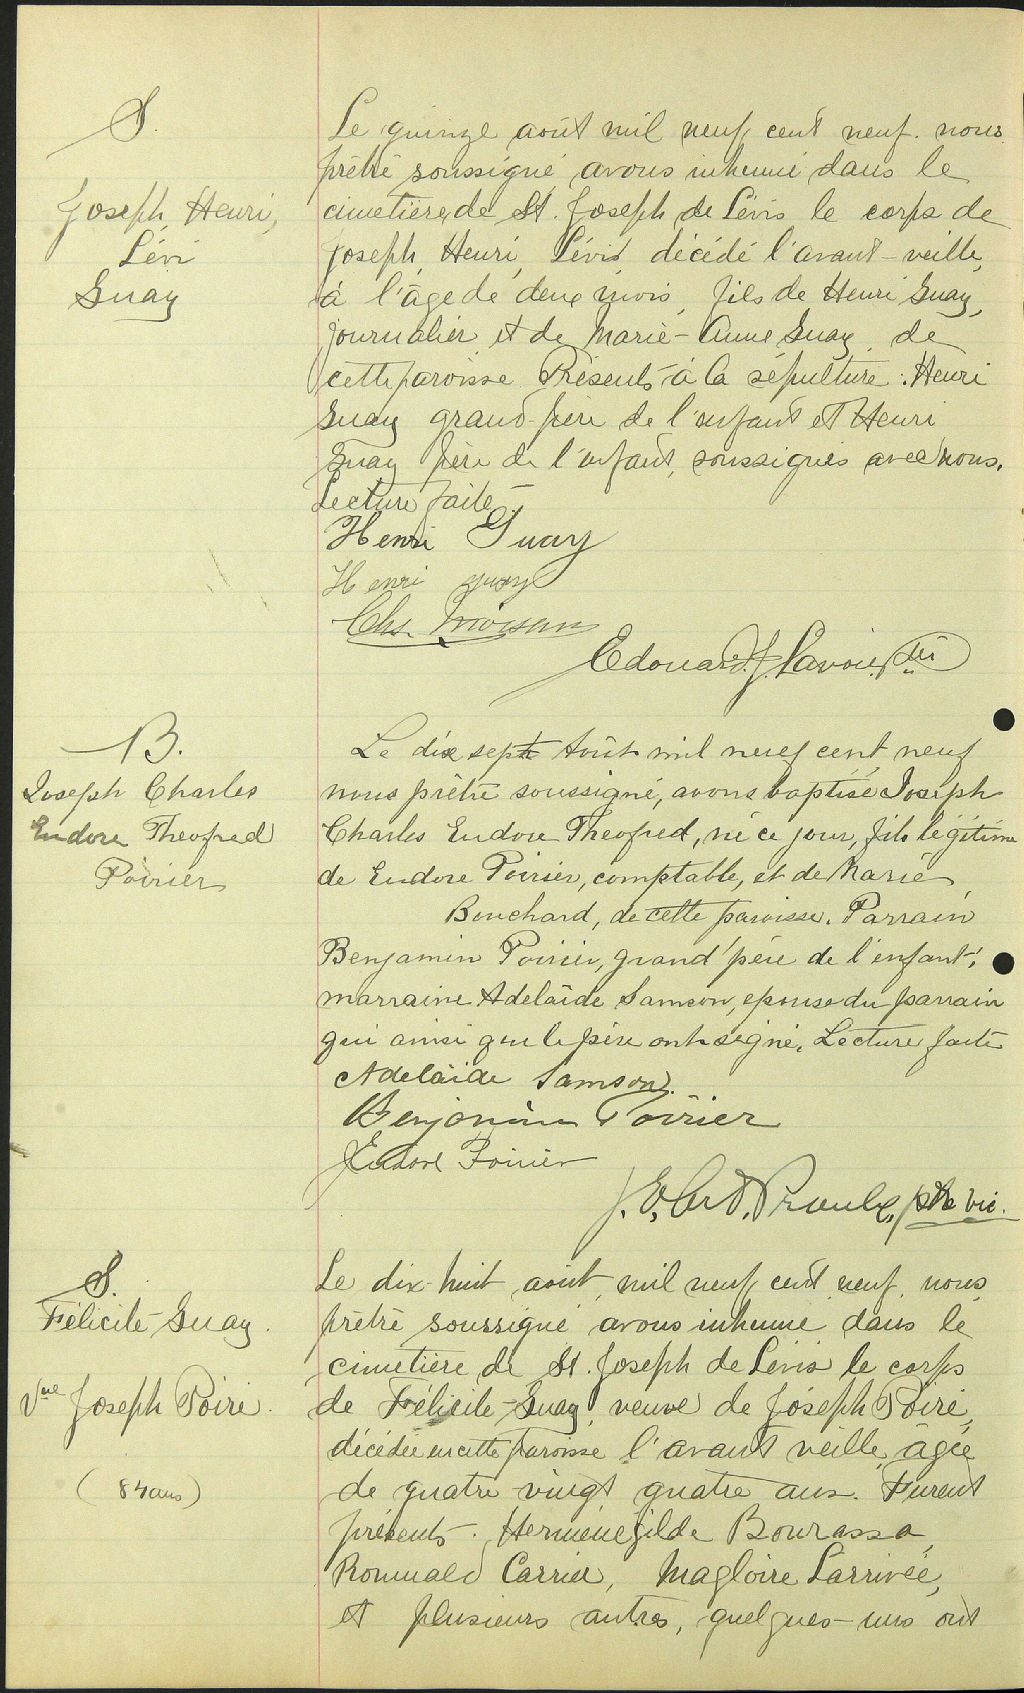 S.
Joseph Henri,
Lévi
Guay
Le quinze août mil neuf cent neuf. nous
prêtre soussigné avons inhumé dans le
cimetière de St. Joseph de Lévis le corps de
Joseph, Henri, Lévis, décédé l'avant-veille,
à l'âge de deux mois, fils de Henri Guay,
journalier et de Marie-Anne Guay, de
cette paroisse. Présents à la sépulture : Henri
Guay grand-père de l'enfant et Henri
Guay père de l'enfant, soussignés avec nous.
Lecture faite.
Henri Guay
Henri guay
Chs.
Edouard J. Lavoie, ptre
B.
Joseph Charles
Eudore Theofred
Poirier
Le dix sept Août mil neuf cent neuf
nous prêtre soussigné, avons baptisé Joseph
Charles Eudore Theofred, né ce jour, fils légitime
de Eudore Poirier, comptable, et de Marie
Bouchard, de cette paroisse. Parrain
Benjamin Poirier, grand'père de l'enfant;
marraine Adelaïde Samson, epouse du parrain
qui ainsi que le père ont signé. Lecture faite
Adelaïde Samson.
Benjamin Poirier
Eudore Poirier
Proulx, ptre vic.
S.
Félicité Guay.
Vve Joseph Poiré.
(84 ans)
Le dix-huit août mil neuf cent neuf, nous
prêtre soussigné avons inhumé dans le
cimetière de St. Joseph de Lévis le corps
de Félicité Guay, veuve de Joseph Poiré,
décédée en cette paroisse l'avant veille, âgée
de quatre-vingt quatre ans. Furent
présents : Herménégilde Bourassa,
Romuald Carrier, Magloire Larrivée,
et plusieurs autres, quelques-uns ont